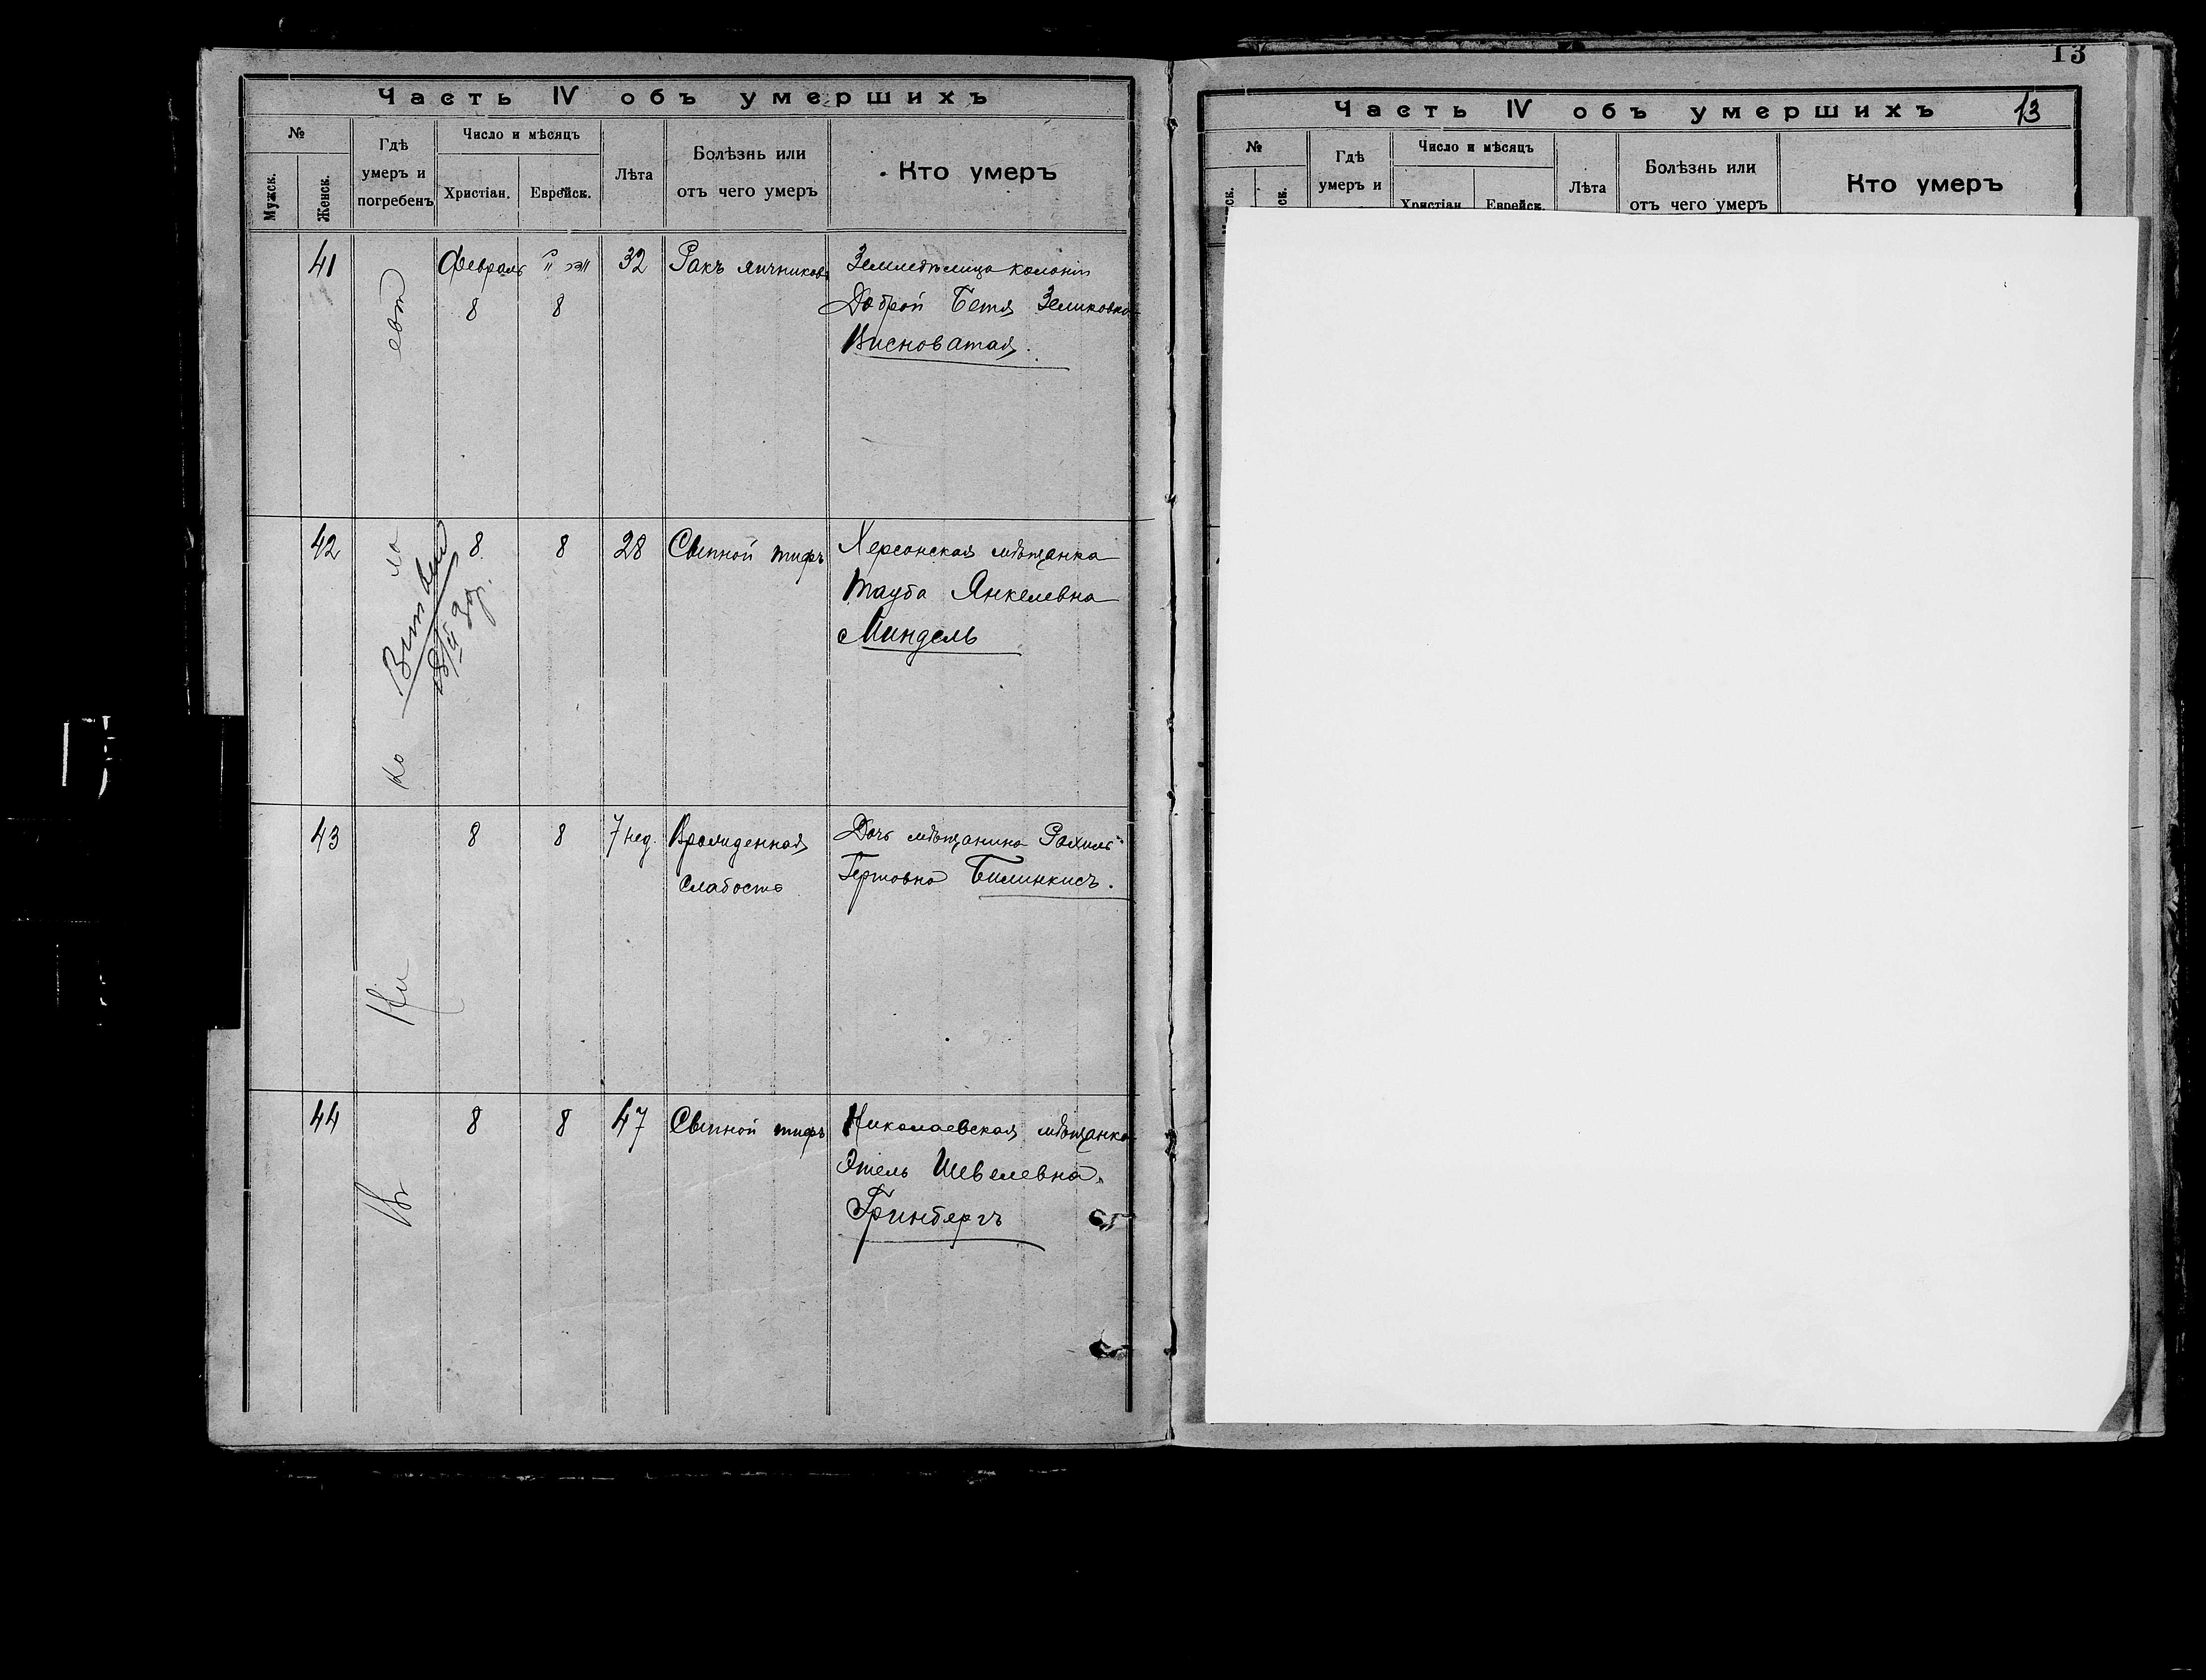 Часть IV объ умершихъ
№
Мужск.
Женск.
Гдѣ
умеръ и
погребенъ
Число и мѣсяцъ
Христіан.
Еврейск.
Лѣта
Болѣзнь или
отъ чего умеръ
Кто умеръ
41
Февраль
8
8
32
Ракъ яичниковъ
Земледѣлица колоніи
Доброй Бетя Зеликовна
Висноватая.
42
8
8
28
Сыпной тифъ
Херсонская мѣщанка
Тауба Янкелевна
Миндель
43
8
8
7 нед.
Врожденная
слабость
Дочь мѣщанина Рахиль
Гертовна Билинкисъ.
44
8
8
47
Сыпной тифъ
Николаевская мѣщанка
Этель Шевелевна
Гринбергъ
Ни
ко
ла
евъ
13
Часть IV объ умершихъ 13
№
Гдѣ
умеръ и
Число и мѣсяцъ
Христіан.
Еврейск.
Лѣта
Болѣзнь или
отъ чего умеръ
Кто умеръ